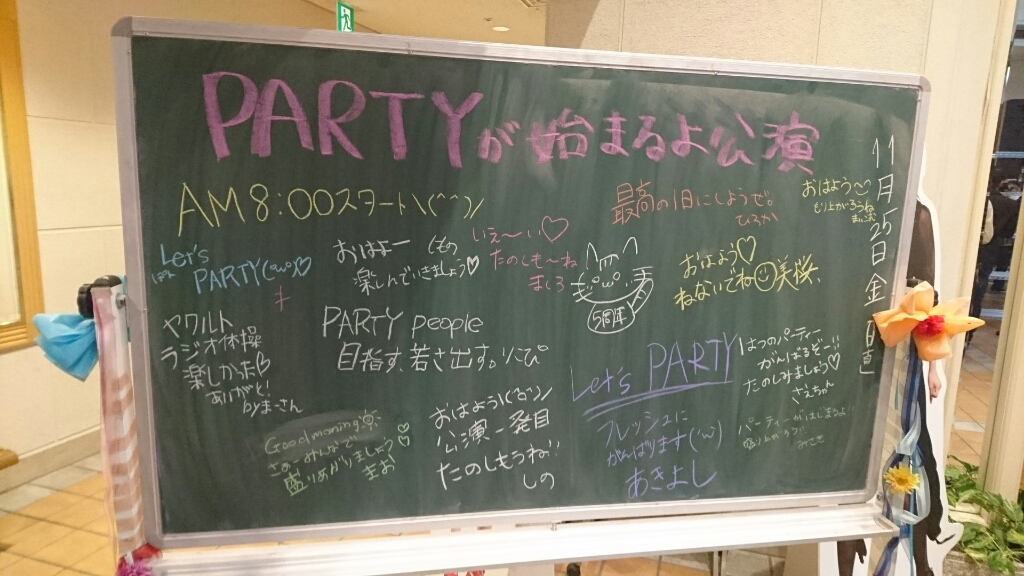 PARTYが始まるよ公演
11月25日金曜日
AM8:00スタート\(^^)/
最高の1日にしようで。
ひろか
おはよう
もりあがろうね
Let's
PARTY(ω)♡
おはよー
楽しんでいきましょう♡
いえ〜い♡
たのしも〜ね
ましろ
5周年
おはよう♡
ねないでね☺美桜、
ヤクルト
ラジオ体操
楽しかった♡
ありがとう
PARTY people
目指す。若さ出す。りこぴ
Let's PARTY
はつのパーティー
がんばるぞー!!
たのしみましょう♡
さえちゃん
Good morning
盛りあがりましょう
まお
おはよう
公演一発目
たのしもうね!
しの
フレッシュに
がんばります(・ω・)
あきよし
パーティーがはじまるよ